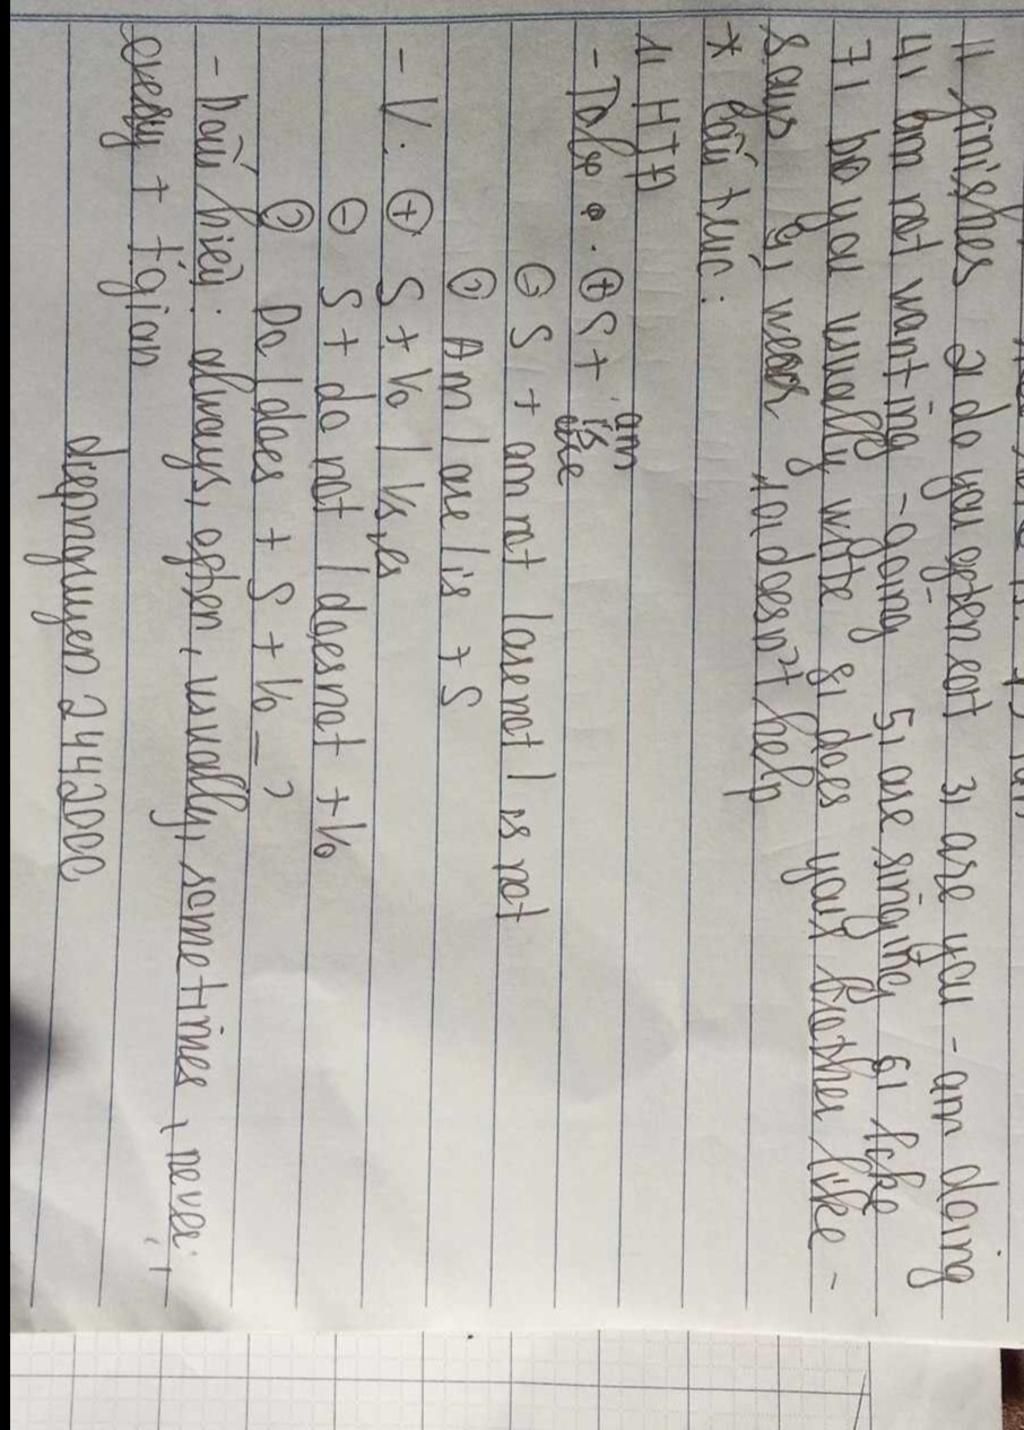 1, finishes 2, do you often eat 3, are you - am doing
4, am not wanting - going 5, are singing 6, like
7, Do you usually write 8, does your brother like -
says 9, wears 10, doesn't help
* Cấu trúc:
1, HTĐ
- Tobe: (+) S + am
is
are
(-) S + am not / are not / is not
(?) Am / are / is + S
- V: (+) S + V0 / Vs,es
(-) S + do not / does not + V0
(?) Do / does + S + V0 _ ?
- Dấu hiệu: always, often, usually, sometimes, never,
every + tgian
diepnguyen 2442000